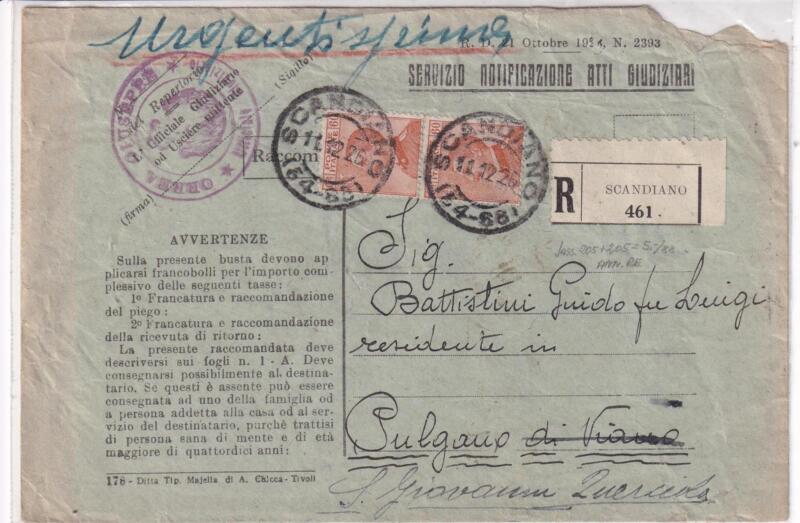 Urgentissima
R. D. 21 Ottobre 1924, N. 2393
SERVIZIO NOTIFICAZIONE ATTI GIUDIZIARI
Repertorio
(Sigillo)
L' Ufficiale Giudiziario
od Usciere mittente
(firma)
GIUSEPPE
Raccom
SCANDIANO
11.12.26
(64-66)
SCANDIANO
11.12.26
(64-66)
R
SCANDIANO
461.
AVVERTENZE
Sulla presente busta devono ap
plicarsi francobolli per l'importo com
plessivo delle seguenti tasse:
1º Francatura e raccomandazione
del piego:
2º Francatura e raccomandazione
della ricevuta di ritorno:
La presente raccomandata deve
descriversi sui fogli n. 1 - A. Deve
consegnarsi possibilmente al destina-
tario. Se questi è assente può essere
consegnata ad uno della famiglia od
a persona addetta alla casa od al ser-
vizio del destinatario, purchè trattisi
di persona sana di mente e di età
maggiore di quattordici anni:
178 - Ditta Tip. Majella di A. Chicca - Tivoli
Sig.
Battistini Guido fu Luigi
residente in
Pulgano di Viano
S. Giovanni Querciola